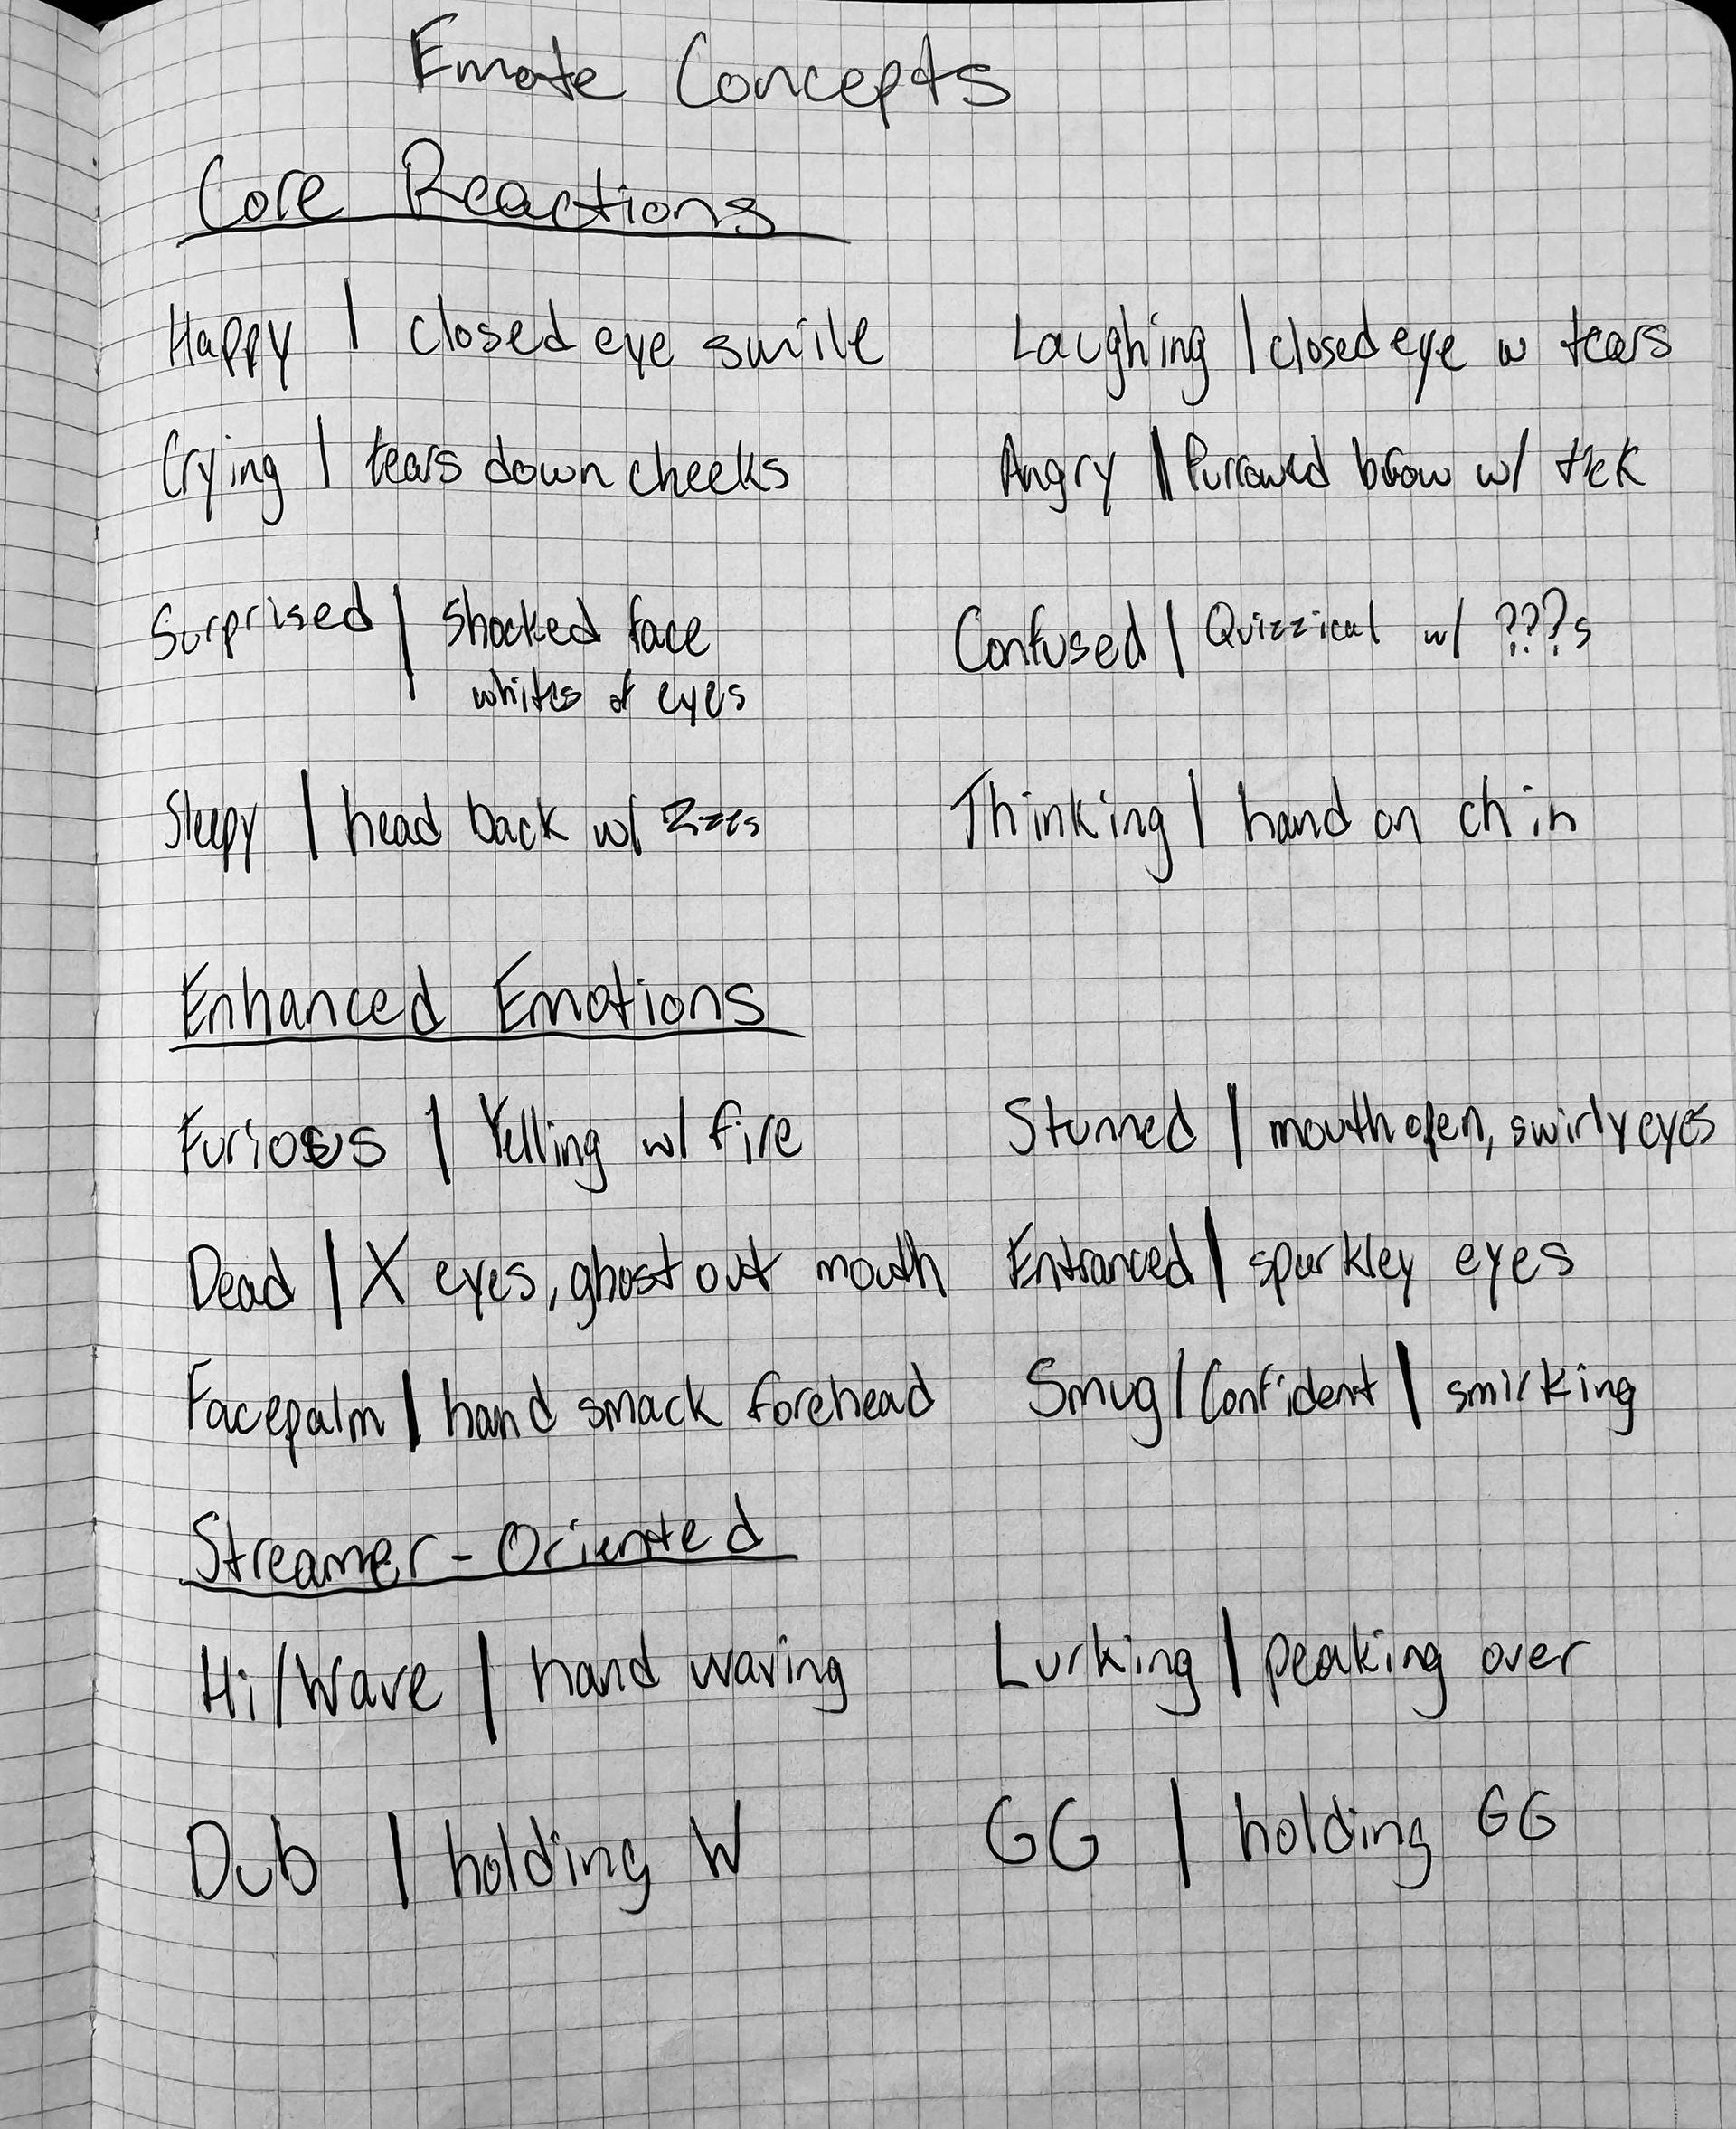 Emote Concepts
Core Reactions
Happy | closed eye smile
Laughing | closed eye w tears
Crying | tears down cheeks
Angry | Furrowed brow w/ tick
Surprised | Shocked face
whites of eyes
Confused | Quizzical w/ ???s
Sleepy | head back w/ Zzzs
Thinking | hand on chin
Enhanced Emotions
Furious | Yelling w/ fire
Stunned | mouth open, swirly eyes
Dead | X eyes, ghost out mouth
Entranced | sparkley eyes
Facepalm | hand smack forehead
Smug/Confident | smirking
Streamer-Oriented
Hi/Wave | hand waving
Lurking | peaking over
Dub | holding W
GG | holding GG